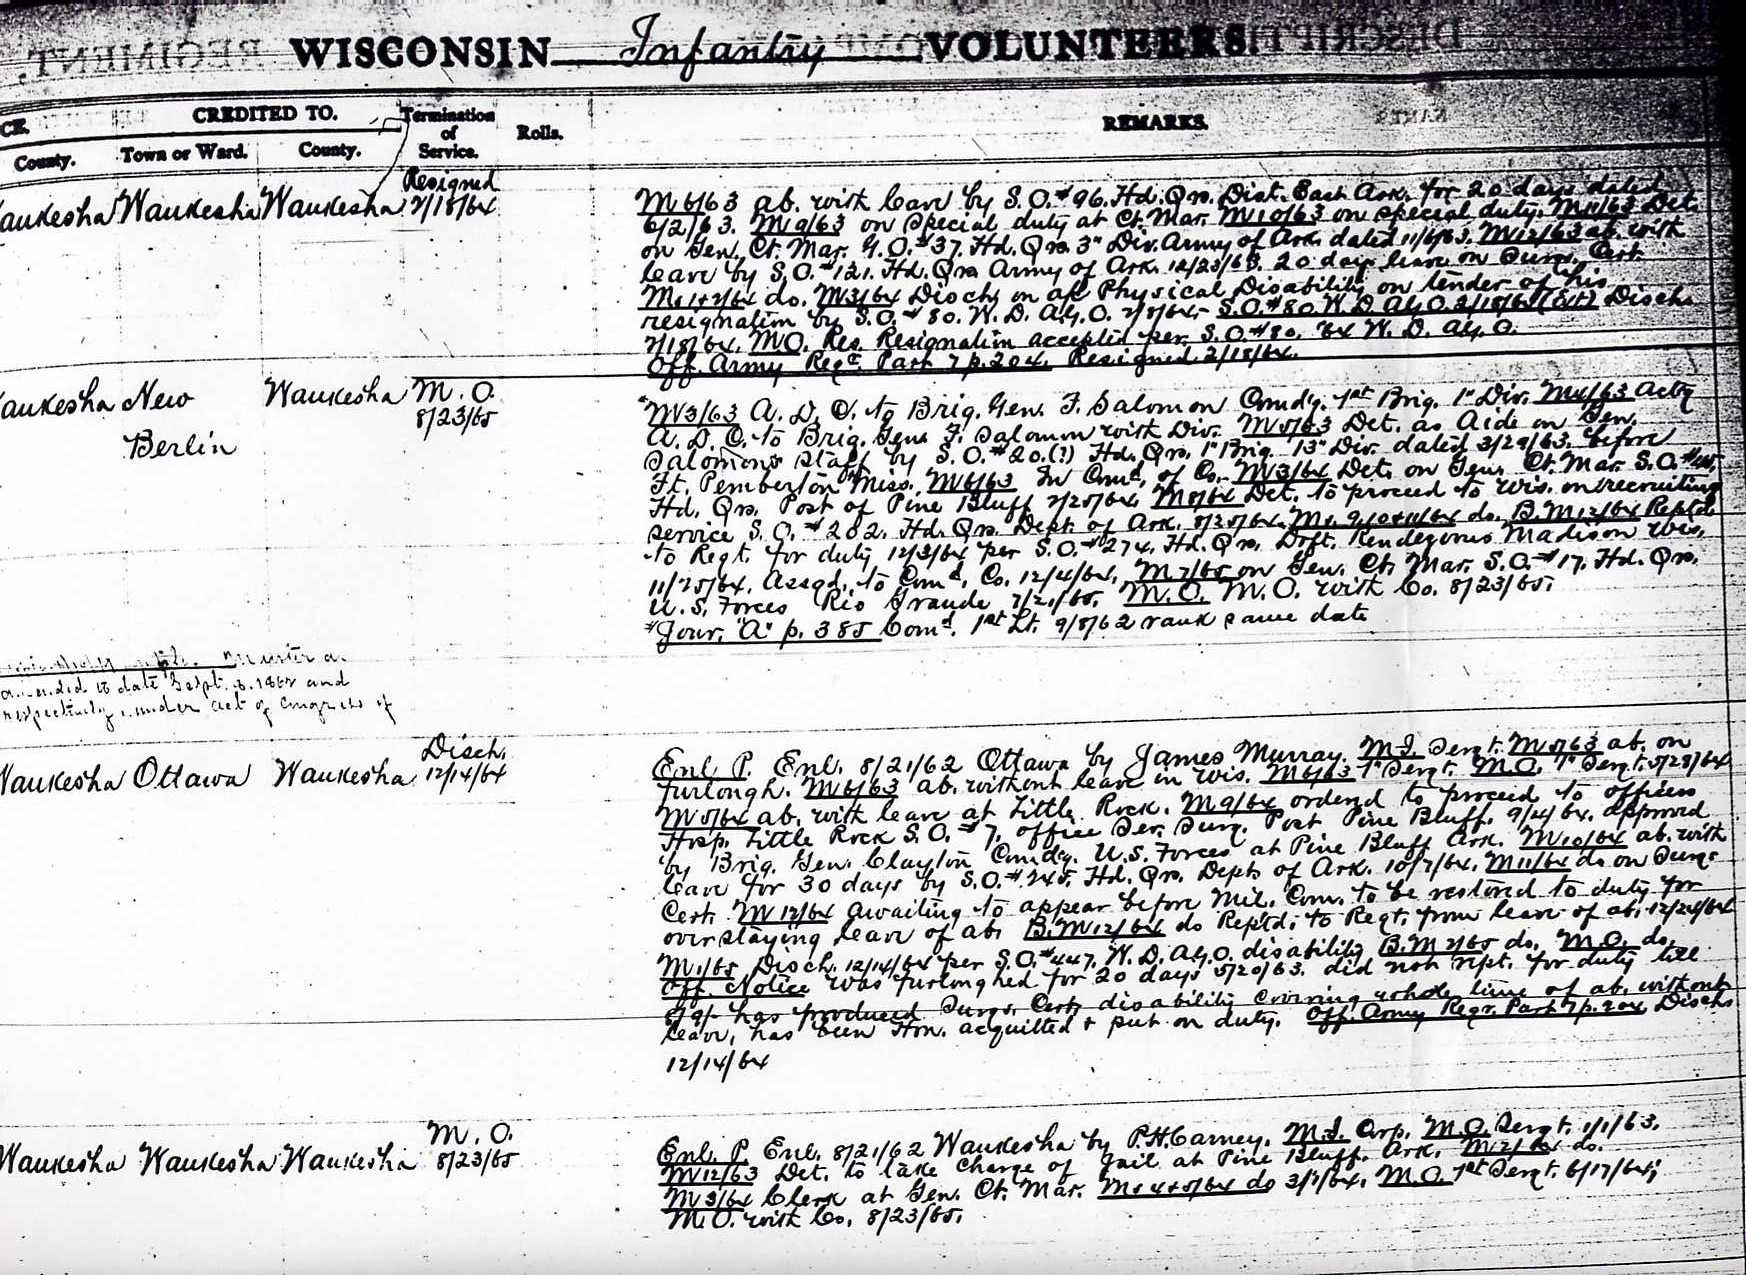 WISCONSIN Infantry VOLUNTEERS.
CE.
CREDITED TO.
Termination of Service.
Rolls.
REMARKS.
County.
Town or Ward.
County.
aukesha Waukesha Waukesha Resigned 2/18/64
M 6/63 ab. with leave by S.O. #96. Hd. Qrs. Dist. East Ark. for 20 days dated
6/2/63. M 9/63 on special duty at Ct. Mar. M 10/63 on special duty. M 11/63 Det.
on Gen. Ct. Mar. G.O. #37. Hd. Qrs. 3" Div. Army of Ark. dated 11/6/63. M 12/63 ab. with
leave by S.O. #121. Hd. Qrs. Army of Ark. 12/23/63. 20 days leave on Surgs. Cert.
Ms 1+2/64 do. M 3/64 Disch. on a/c Physical Disability on tender of his
resignation by S.O. #80. W.D. A.G.O. 2/18/64. S.O. #80 W.D. A.G.O. 2/18/64 (Ext) Disch.
2/18/64. M.O. Res. Resignation accepted per S.O. #80. '64 W.D. A.G.O.
Off. Army Regr. Part 7 p. 204. Resigned 2/18/64.
aukesha New Berlin Waukesha M.O. 8/23/65
M 3/63 A.D.C. to Brig. Gen. F. Salomon Comdg. 1st Brig. 1" Div. M 4/63 Actg
A.D.C. to Brig. Genl F. Salomon with Div. M 5/63 Det. as Aide on Gen.
Salomons staff by S.O. #20.(?) Hd. Qrs. 1" Brig. 13" Div. dated 3/29/63. before
Ft. Pemberton Miss. M 6/63 In Comd. of Co. M 3/64 Det. on Gen. Ct. Mar. S.O.
Hd. Qrs. Post of Pine Bluff 2/25/64. M 8/64 Det. to proceed to Wis. on recruiting
service S.O. #202. Hd. Qrs. Dept. of Ark. 8/25/64. Ms. 9, 10 + 11/64 do. B.M 12/64 Reptd
to Regt. for duty 12/3/64 per S.O. #274. Hd. Qrs. Drft. Rendezvous Madison Wis.
11/25/64. Assgd. to Comd. Co. 12/4/64. M 7/65 on Gen. Ct. Mar. S.O. #17. Hd. Qrs.
U.S. Forces Rio Grande 7/21/65. M.O. M.O. with Co. 8/23/65.
*Jour. "A" p. 385 Comd. 1st Lt. 9/8/62 rank same date
muster a.
amended to date Sept. 8. 1862 and
respectively, under act of Congress of
Waukesha Ottawa Waukesha Disch. 12/14/64
Enl. P. Enl. 8/21/62 Ottawa by James Murray. M.I. Sergt. M 5/63 ab. on
furlough. M 6/63 ab. without leave in Wis. M 6/63 1" Sergt. M.O. 1" Sergt. 5/28/64
M 5/64 ab. with leave at Little Rock. M 9/64 ordered to proceed to officers
Hosp. Little Rock S.O. #7. office Ser. Surg. Post Pine Bluff. 9/4/64. approved
by Brig. Gen. Clayton Comdg. U.S. Forces at Pine Bluff Ark. M 10/64 ab. with
leave for 30 days by S.O. #245. Hd. Qrs. Dept. of Ark. 10/7/64. M 11/64 do on Surgs
Cert. M 12/64 Awaiting to appear before Mil. Com. to be restored to duty for
overstaying leave of ab. B.M 12/64 do Reptd. to Regt. from leave of ab. 12/24/64
M 1/65 Disch. 12/14/64 per S.O. #447. W.D. A.G.O. disability B.M 2/65 do. M.O. do.
Off. Notice was furloughed for 20 days 5/20/63. did not rept. for duty till
has produced Surgs. Cert. disability covering whole time of ab. without
leave, has been Hon. acquitted + put on duty. Off. Army Regr. Part 7 p. 204. Dischd
12/14/64
Waukesha Waukesha Waukesha M.O. 8/23/65
Enl. P. Enl. 8/21/62 Waukesha by P.H. Carney. M.I. Corp. M.O. Sergt. 1/1/63.
M 12/63 Det. to take charge of Jail at Pine Bluff. Ark. M 2/64 do.
M 3/64 Clerk at Gen. Ct. Mar. Ms 4+5/64 do 3/1/64. M.O. 1st Sergt. 6/17/64;
M.O. with Co. 8/23/65.